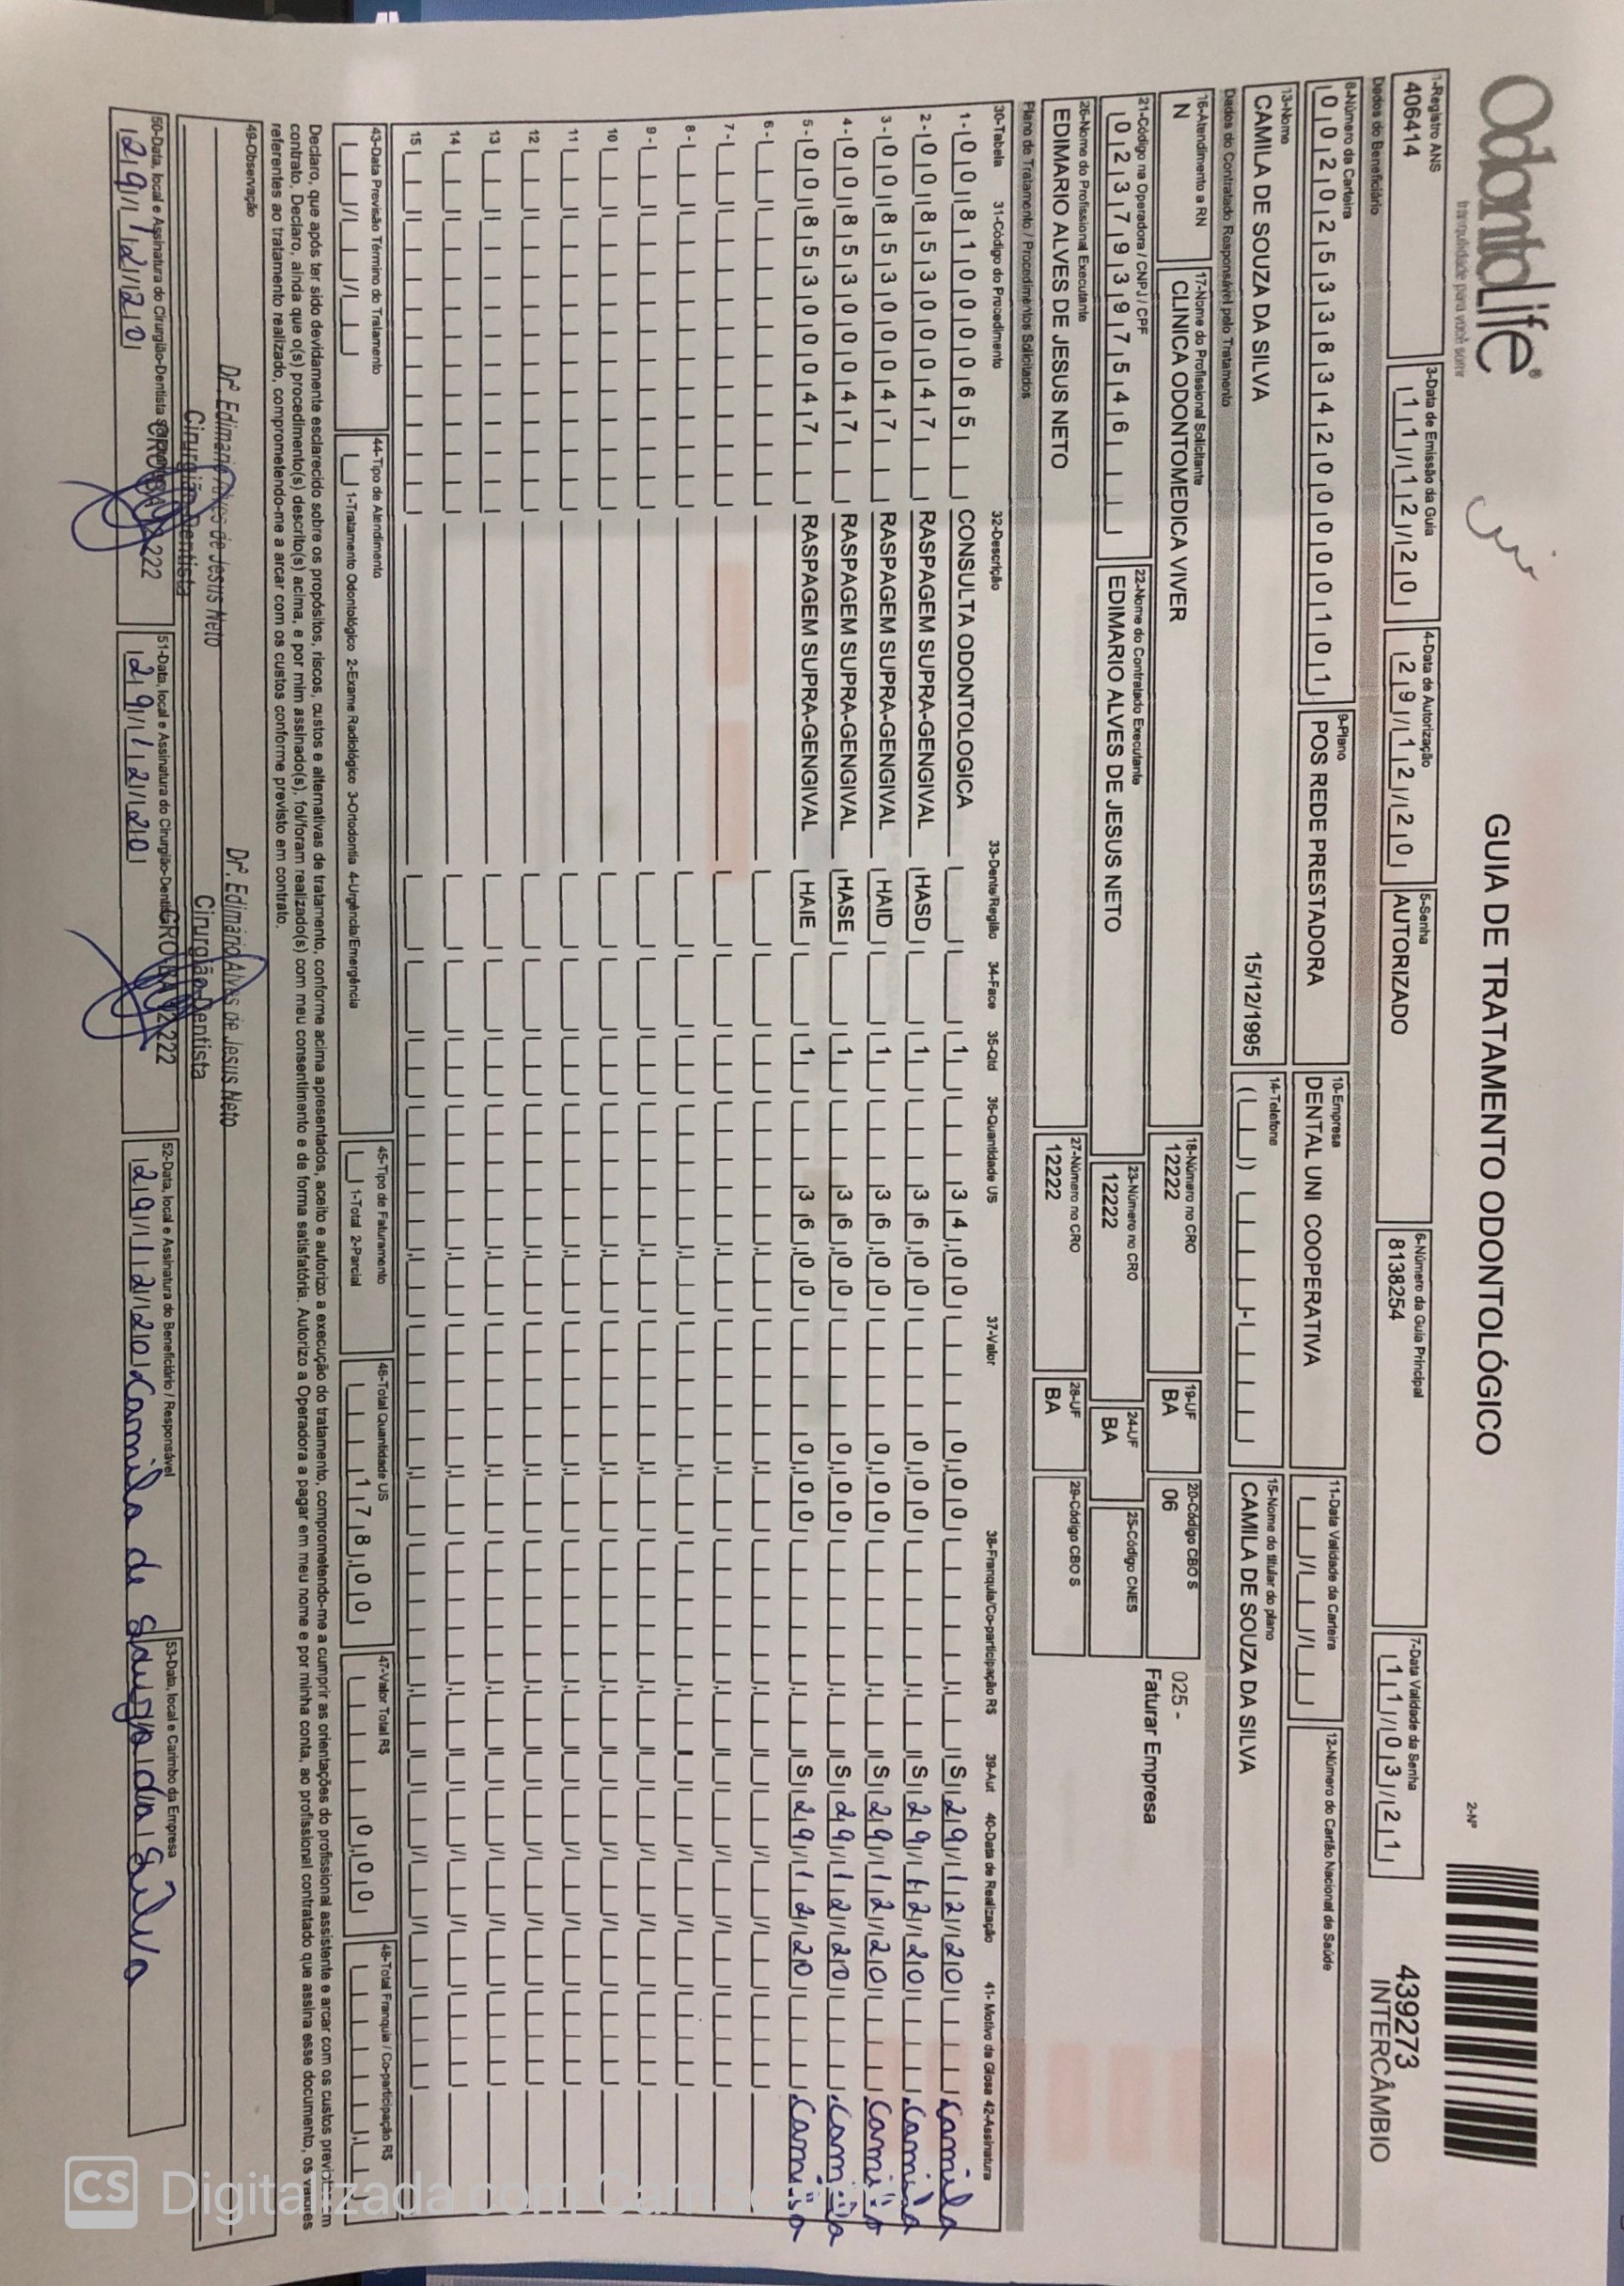 OdontoLife®
tranquilidade para você sorrir
GUIA DE TRATAMENTO ODONTOLÓGICO
2-Nº
439273
INTERCÂMBIO
1-Registro ANS 3-Data de Emissão da Guia 4-Data de Autorização 5-Senha 6-Número da Guia Principal 7-Data Validade da Senha
406414 11/12/20 29/12/20 AUTORIZADO 8138254 11/03/21
Dados do Beneficiário
8-Número da Carteira 9-Plano 10-Empresa 11-Data Validade da Carteira 12-Número do Cartão Nacional de Saúde
00202533834200000101 POS REDE PRESTADORA DENTAL UNI COOPERATIVA
13-Nome 14-Telefone 15-Nome do titular do plano
CAMILA DE SOUZA DA SILVA 15/12/1995 CAMILA DE SOUZA DA SILVA
Dados do Contratado Responsável pelo Tratamento
16-Atendimento a RN 17-Nome do Profissional Solicitante 18-Número no CRO 19-UF 20-Código CBO S
N CLINICA ODONTOMEDICA VIVER 12222 BA 06
025 -
Faturar Empresa
21-Código na Operadora / CNPJ / CPF 22-Nome do Contratado Executante 23-Número no CRO 24-UF 25-Código CNES
02379339 7546 EDIMARIO ALVES DE JESUS NETO 12222 BA
26-Nome do Profissional Executante 27-Número no CRO 28-UF 29-Código CBO S
EDIMARIO ALVES DE JESUS NETO 12222 BA
Plano de Tratamento / Procedimentos Solicitados
30-Tabela 31-Código do Procedimento 32-Descrição 33-Dente/Região 34-Face 35-Qtd 36-Quantidade US 37-Valor 38-Franquia/Co-participação R$ 39-Aut 40-Data de Realização 41- Motivo da Glosa 42-Assinatura
1- 00 81000065 CONSULTA ODONTOLOGICA 1 34,00 0,00 S 29/12/20 Camila
2- 00 85300047 RASPAGEM SUPRA-GENGIVAL HASD 1 36,00 0,00 S 29/12/20 Camila
3- 00 85300047 RASPAGEM SUPRA-GENGIVAL HAID 1 36,00 0,00 S 29/12/20 Camila
4- 00 85300047 RASPAGEM SUPRA-GENGIVAL HASE 1 36,00 0,00 S 29/12/20 Camila
5- 00 85300047 RASPAGEM SUPRA-GENGIVAL HAIE 1 36,00 0,00 S 29/12/20 Camila
6-
7-
8-
9-
10
11
12
13
14
15
43-Data Previsão Término do Tratamento 44-Tipo de Atendimento 45-Tipo de Faturamento 46-Total Quantidade US 47-Valor Total R$ 48-Total Franquia / Co-participação R$
1-Tratamento Odontológico 2-Exame Radiológico 3-Ortodontia 4-Urgência/Emergência 1-Total 2-Parcial 178,00 0,00
Declaro, que após ter sido devidamente esclarecido sobre os propósitos, riscos, custos e alternativas de tratamento, conforme acima apresentados, aceito e autorizo a execução do tratamento, comprometendo-me a cumprir as orientações do profissional assistente e arcar com os custos previstos em
contrato. Declaro, ainda que o(s) procedimento(s) descrito(s) acima, e por mim assinado(s), foi/foram realizado(s) com meu consentimento e de forma satisfatória. Autorizo a Operadora a pagar em meu nome e por minha conta, ao profissional contratado que assina esse documento, os valores
referentes ao tratamento realizado, comprometendo-me a arcar com os custos conforme previsto em contrato.
49-Observação
Drº. Edimario Alves de Jesus Neto Drº. Edimario Alves de Jesus Neto
Cirurgião-Dentista Cirurgião-Dentista
CRO-BA 12.222 CRO-BA 12.222
50-Data, local e Assinatura do Cirurgião-Dentista 51-Data, local e Assinatura do Cirurgião-Dentista 52-Data, local e Assinatura do Beneficiário / Responsável 53-Data, local e Carimbo da Empresa
29/12/20 29/12/20 29/12/20 Camila de Souza da Silva
CS Digitalizada com